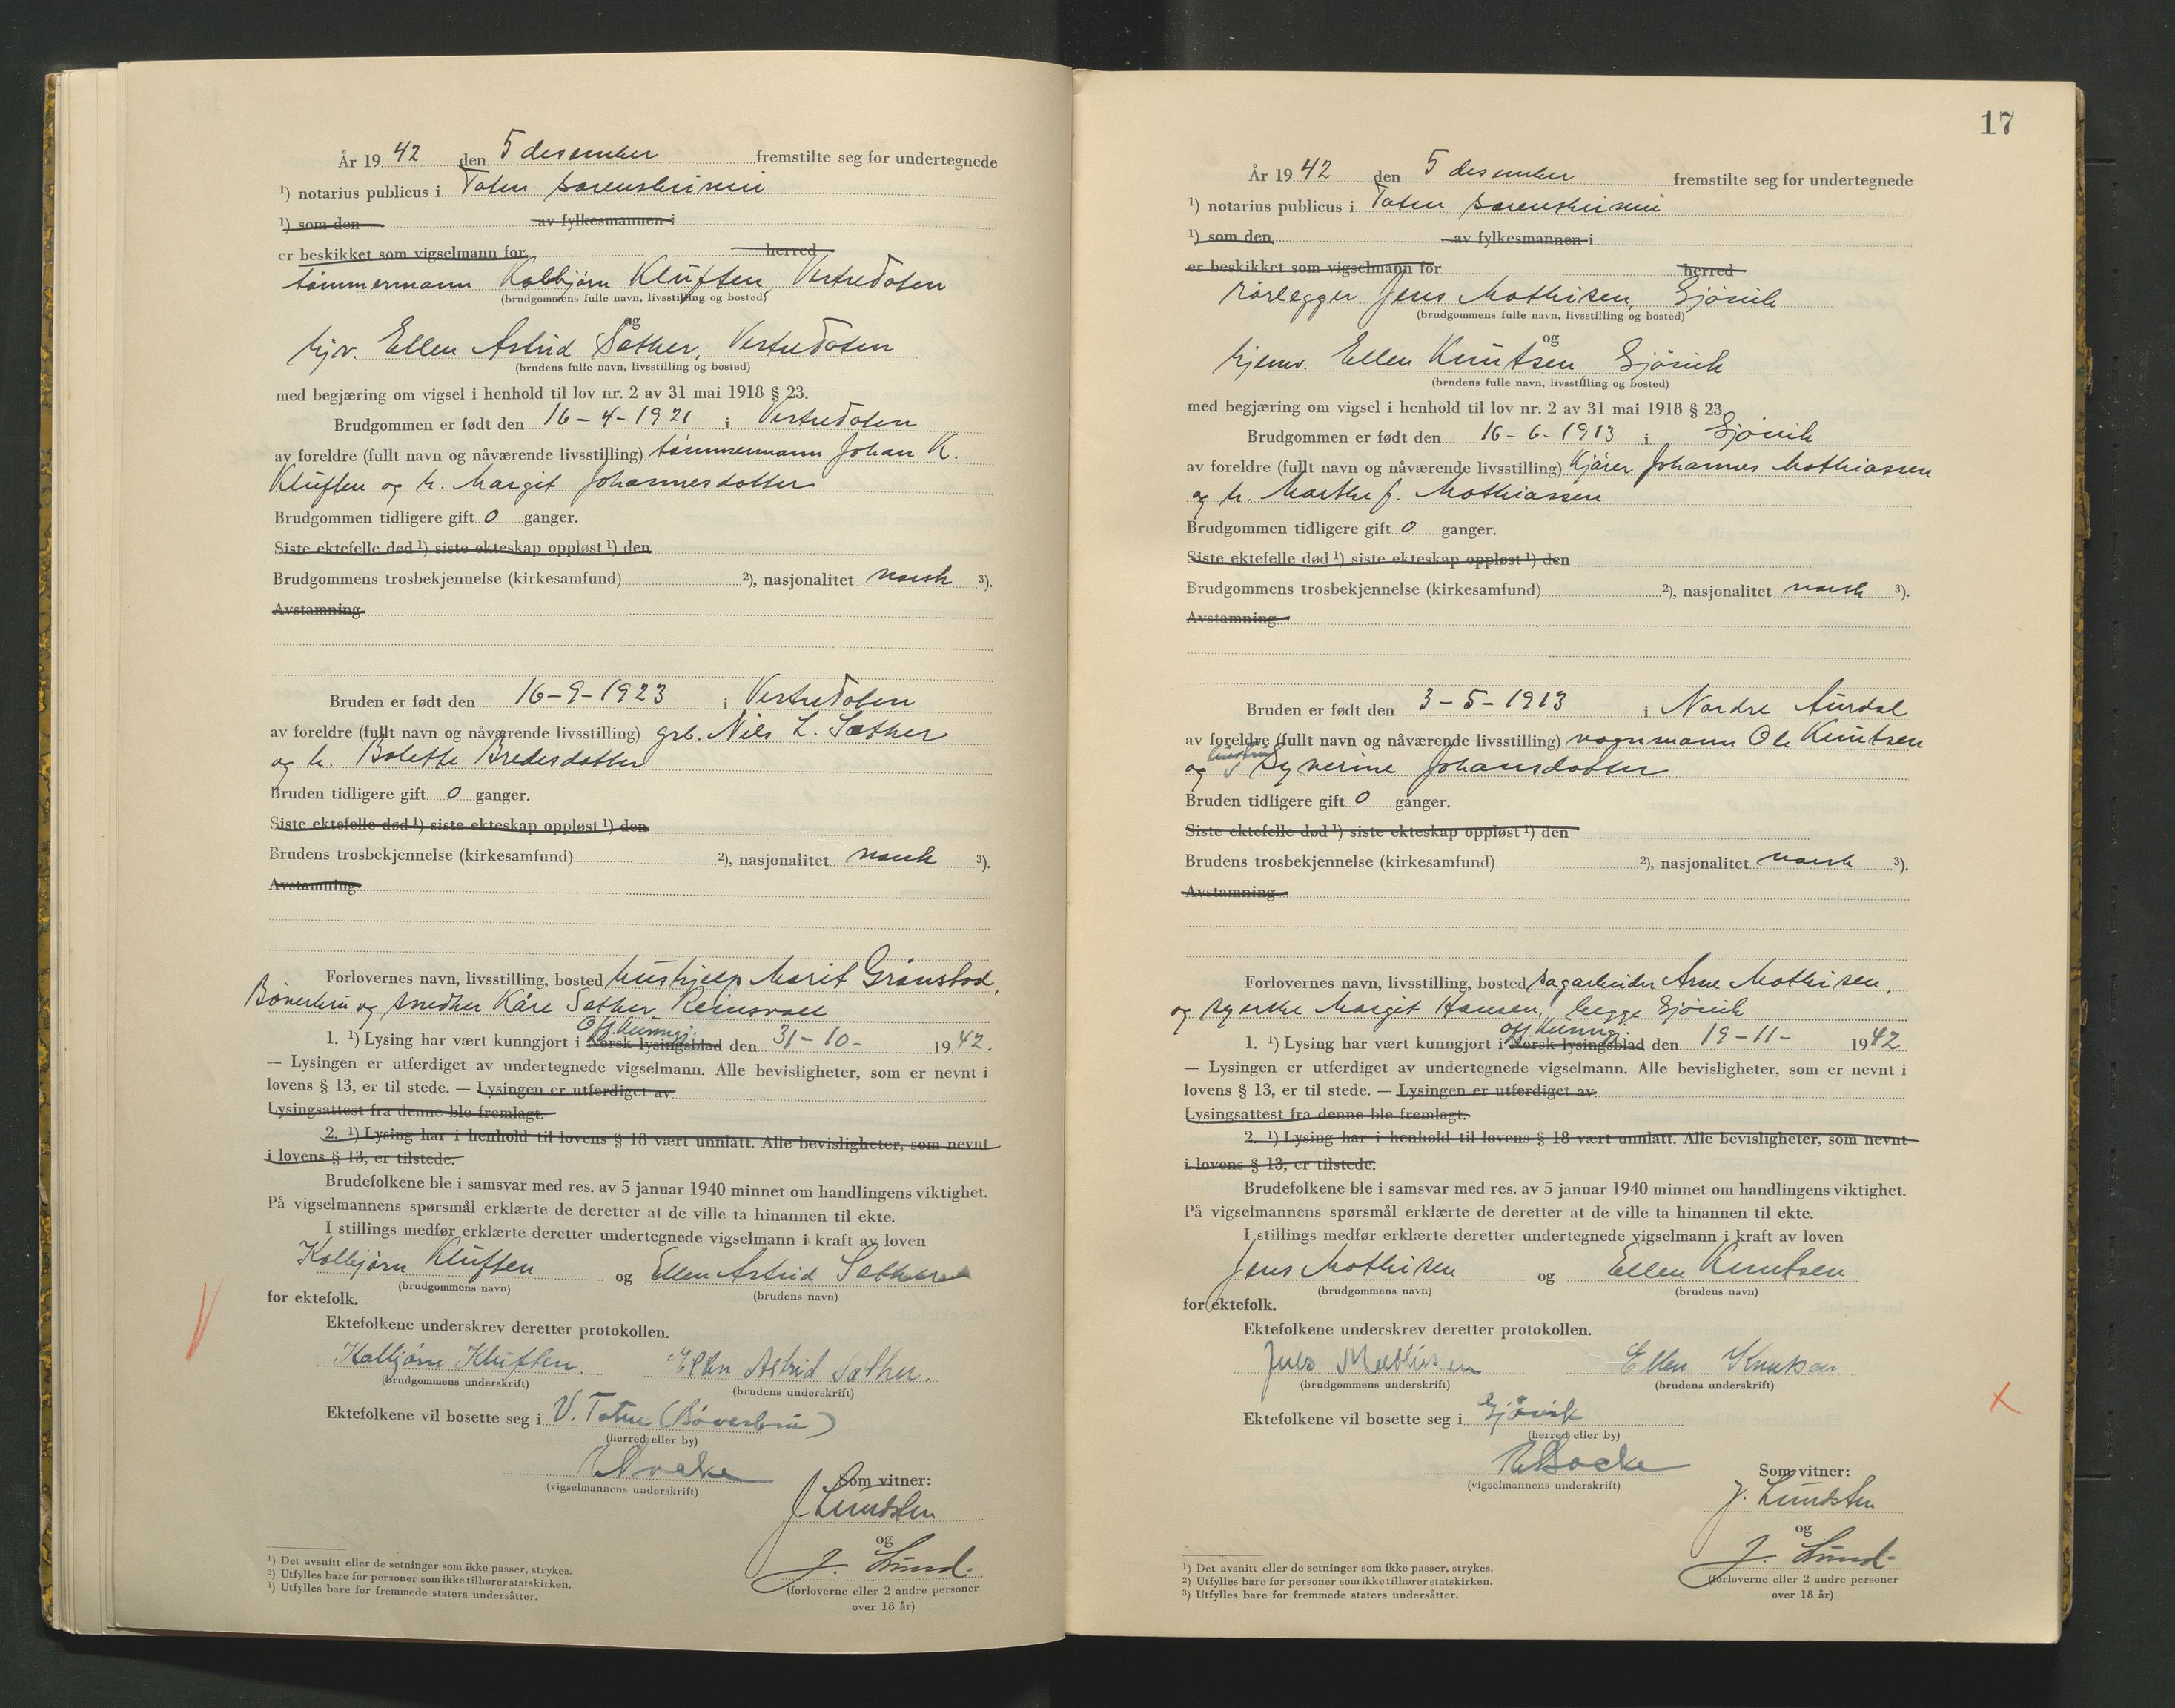 År 1942 den 5 desember fremstilte seg for undertegnede
¹) notarius publicus i Toten sorenskriveri
¹) som den av fylkesmannen i
er beskikket som vigselmann for herred
tømmermann Kolbjørn Kluften, VestreToten
(brudgommens fulle navn, livsstilling og bosted)
og
hjv. Ellen Astrid Sæther, VestreToten
(brudens fulle navn, livsstilling og bosted)
med begjæring om vigsel i henhold til lov nr. 2 av 31 mai 1918 § 23.
Brudgommen er født den 16-4-1921 i VestreToten
av foreldre (fullt navn og nåværende livsstilling) tømmermann Johan K.
Kluften og h. Margit Johannesdotter
Brudgommen tidligere gift 0 ganger.
Siste ektefelle død ¹) siste ekteskap oppløst ¹) den
Brudgommens trosbekjennelse (kirkesamfund) ²), nasjonalitet norsk ³).
Avstamning
Bruden er født den 16-9-1923 i VestreToten
av foreldre (fullt navn og nåværende livsstilling) grb. Nils L. Sæther
og h. Bolette Bredesdatter
Bruden tidligere gift 0 ganger.
Siste ektefelle død ¹) siste ekteskap oppløst ¹) den
Brudens trosbekjennelse (kirkesamfund) ²), nasjonalitet norsk ³).
Avstamning
Forlovernes navn, livsstilling, bosted hushjelp Marit Grønstad,
Bøverbru og snedker Kåre Sæther, Reinsvoll
Off. kunngj.
1. ¹) Lysing har vært kunngjort i Norsk lysingsblad den 31-10- 1942.
— Lysingen er utferdiget av undertegnede vigselmann. Alle bevisligheter, som er nevnt i
lovens § 13, er til stede. — Lysingen er utferdiget av
Lysingsattest fra denne ble fremlagt.
2. ¹) Lysing har i henhold til lovens § 18 vært unnlatt. Alle bevisligheter, som nevnt
i lovens § 13, er tilstede.
Brudefolkene ble i samsvar med res. av 5 januar 1940 minnet om handlingens viktighet.
På vigselmannens spørsmål erklærte de deretter at de ville ta hinannen til ekte.
I stillings medfør erklærte deretter undertegnede vigselmann i kraft av loven
Kolbjørn Kluften og Ellen Astrid Sæther
(brudgommens navn) (brudens navn)
for ektefolk.
Ektefolkene underskrev deretter protokollen.
Kolbjørn Kluften. Ellen Astrid Sæther.
(brudgommens underskrift) (brudens underskrift)
Ektefolkene vil bosette seg i V. Toten (Bøverbru)
(herred eller by)
(vigselmannens underskrift)
Som vitner:
J. Lundsten
og
J. Lund.
(forloverne eller 2 andre personer
over 18 år)
¹) Det avsnitt eller de setninger som ikke passer, strykes.
²) Utfylles bare for personer som ikke tilhører statskirken.
³) Utfylles bare for fremmede staters undersåtter.
17
År 1942 den 5 desember fremstilte seg for undertegnede
¹) notarius publicus i Toten sorenskriveri
¹) som den av fylkesmannen i
er beskikket som vigselmann for herred
rørlegger Jens Mathisen, Gjøvik
(brudgommens fulle navn, livsstilling og bosted)
og
hjemv. Ellen Knutsen, Gjøvik
(brudens fulle navn, livsstilling og bosted)
med begjæring om vigsel i henhold til lov nr. 2 av 31 mai 1918 § 23.
Brudgommen er født den 16-6-1913 i Gjøvik
av foreldre (fullt navn og nåværende livsstilling) kjører Johannes Mathiassen
og h. Marthe f. Mathiassen
Brudgommen tidligere gift 0 ganger.
Siste ektefelle død ¹) siste ekteskap oppløst ¹) den
Brudgommens trosbekjennelse (kirkesamfund) ²), nasjonalitet norsk ³).
Avstamning
Bruden er født den 3-5-1913 i Nordre Aurdal
av foreldre (fullt navn og nåværende livsstilling) vognmann Ole Knutsen
hustru
og Syverine Johansdotter
Bruden tidligere gift 0 ganger.
Siste ektefelle død ¹) siste ekteskap oppløst ¹) den
Brudens trosbekjennelse (kirkesamfund) ²), nasjonalitet norsk ³).
Avstamning
Forlovernes navn, livsstilling, bosted sagarbeider Arne Mathisen,
og syerske Margit Hansen, begge Gjøvik
off. kunngj.
1. ¹) Lysing har vært kunngjort i Norsk lysingsblad den 19-11- 1942
— Lysingen er utferdiget av undertegnede vigselmann. Alle bevisligheter, som er nevnt i
lovens § 13, er til stede. — Lysingen er utferdiget av
Lysingsattest fra denne ble fremlagt.
2. ¹) Lysing har i henhold til lovens § 18 vært unnlatt. Alle bevisligheter, som nevnt
i lovens § 13, er tilstede.
Brudefolkene ble i samsvar med res. av 5 januar 1940 minnet om handlingens viktighet.
På vigselmannens spørsmål erklærte de deretter at de ville ta hinannen til ekte.
I stillings medfør erklærte deretter undertegnede vigselmann i kraft av loven
Jens Mathisen og Ellen Knutsen
(brudgommens navn) (brudens navn)
for ektefolk.
Ektefolkene underskrev deretter protokollen.
Jens Mathisen Ellen Knutsen
(brudgommens underskrift) (brudens underskrift)
Ektefolkene vil bosette seg i Gjøvik
(herred eller by)
(vigselmannens underskrift)
Som vitner:
J. Lundsten
og
J. Lund
(forloverne eller 2 andre personer
over 18 år)
¹) Det avsnitt eller de setninger som ikke passer, strykes.
²) Utfylles bare for personer som ikke tilhører statskirken.
³) Utfylles bare for fremmede staters undersåtter.